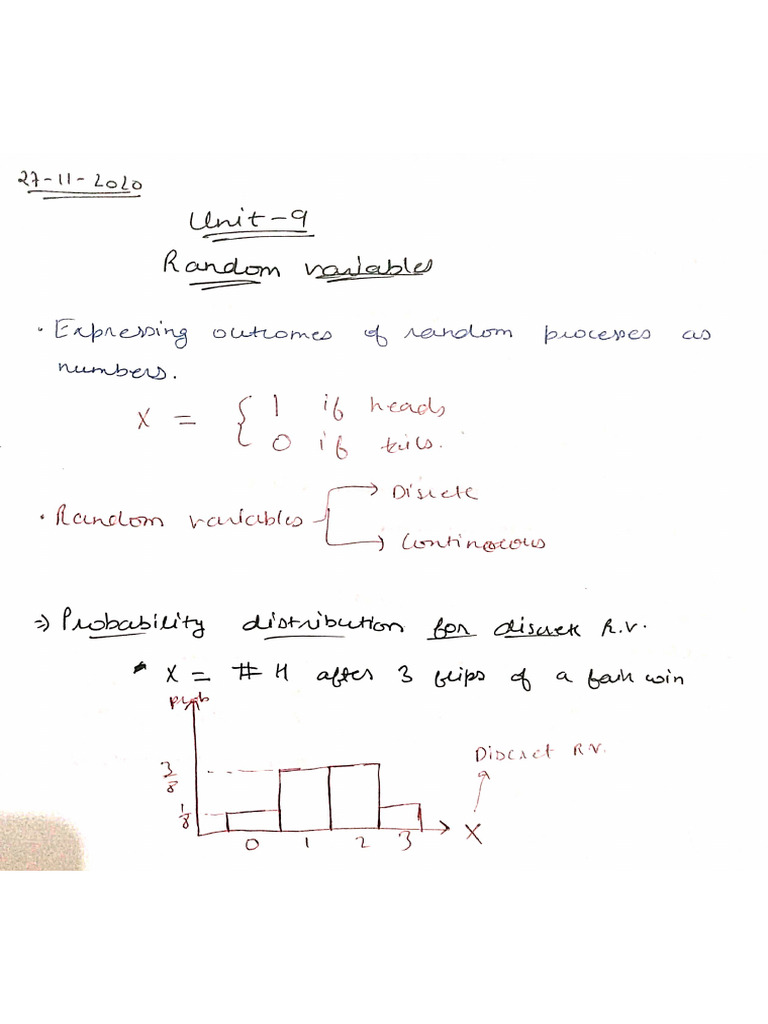 27-11-2020
Unit-9
Random variables
• Expressing outcomes of random processes as
numbers.
X = { 1 if heads
0 if tails.
→ Discrete
• Random variables
→ Continuous
⇒ Probability distribution for discrete R.V.
* X = # H after 3 flips of a fair coin
prob
3/8
Discret R.V.
1/8
X
0 1 2 3